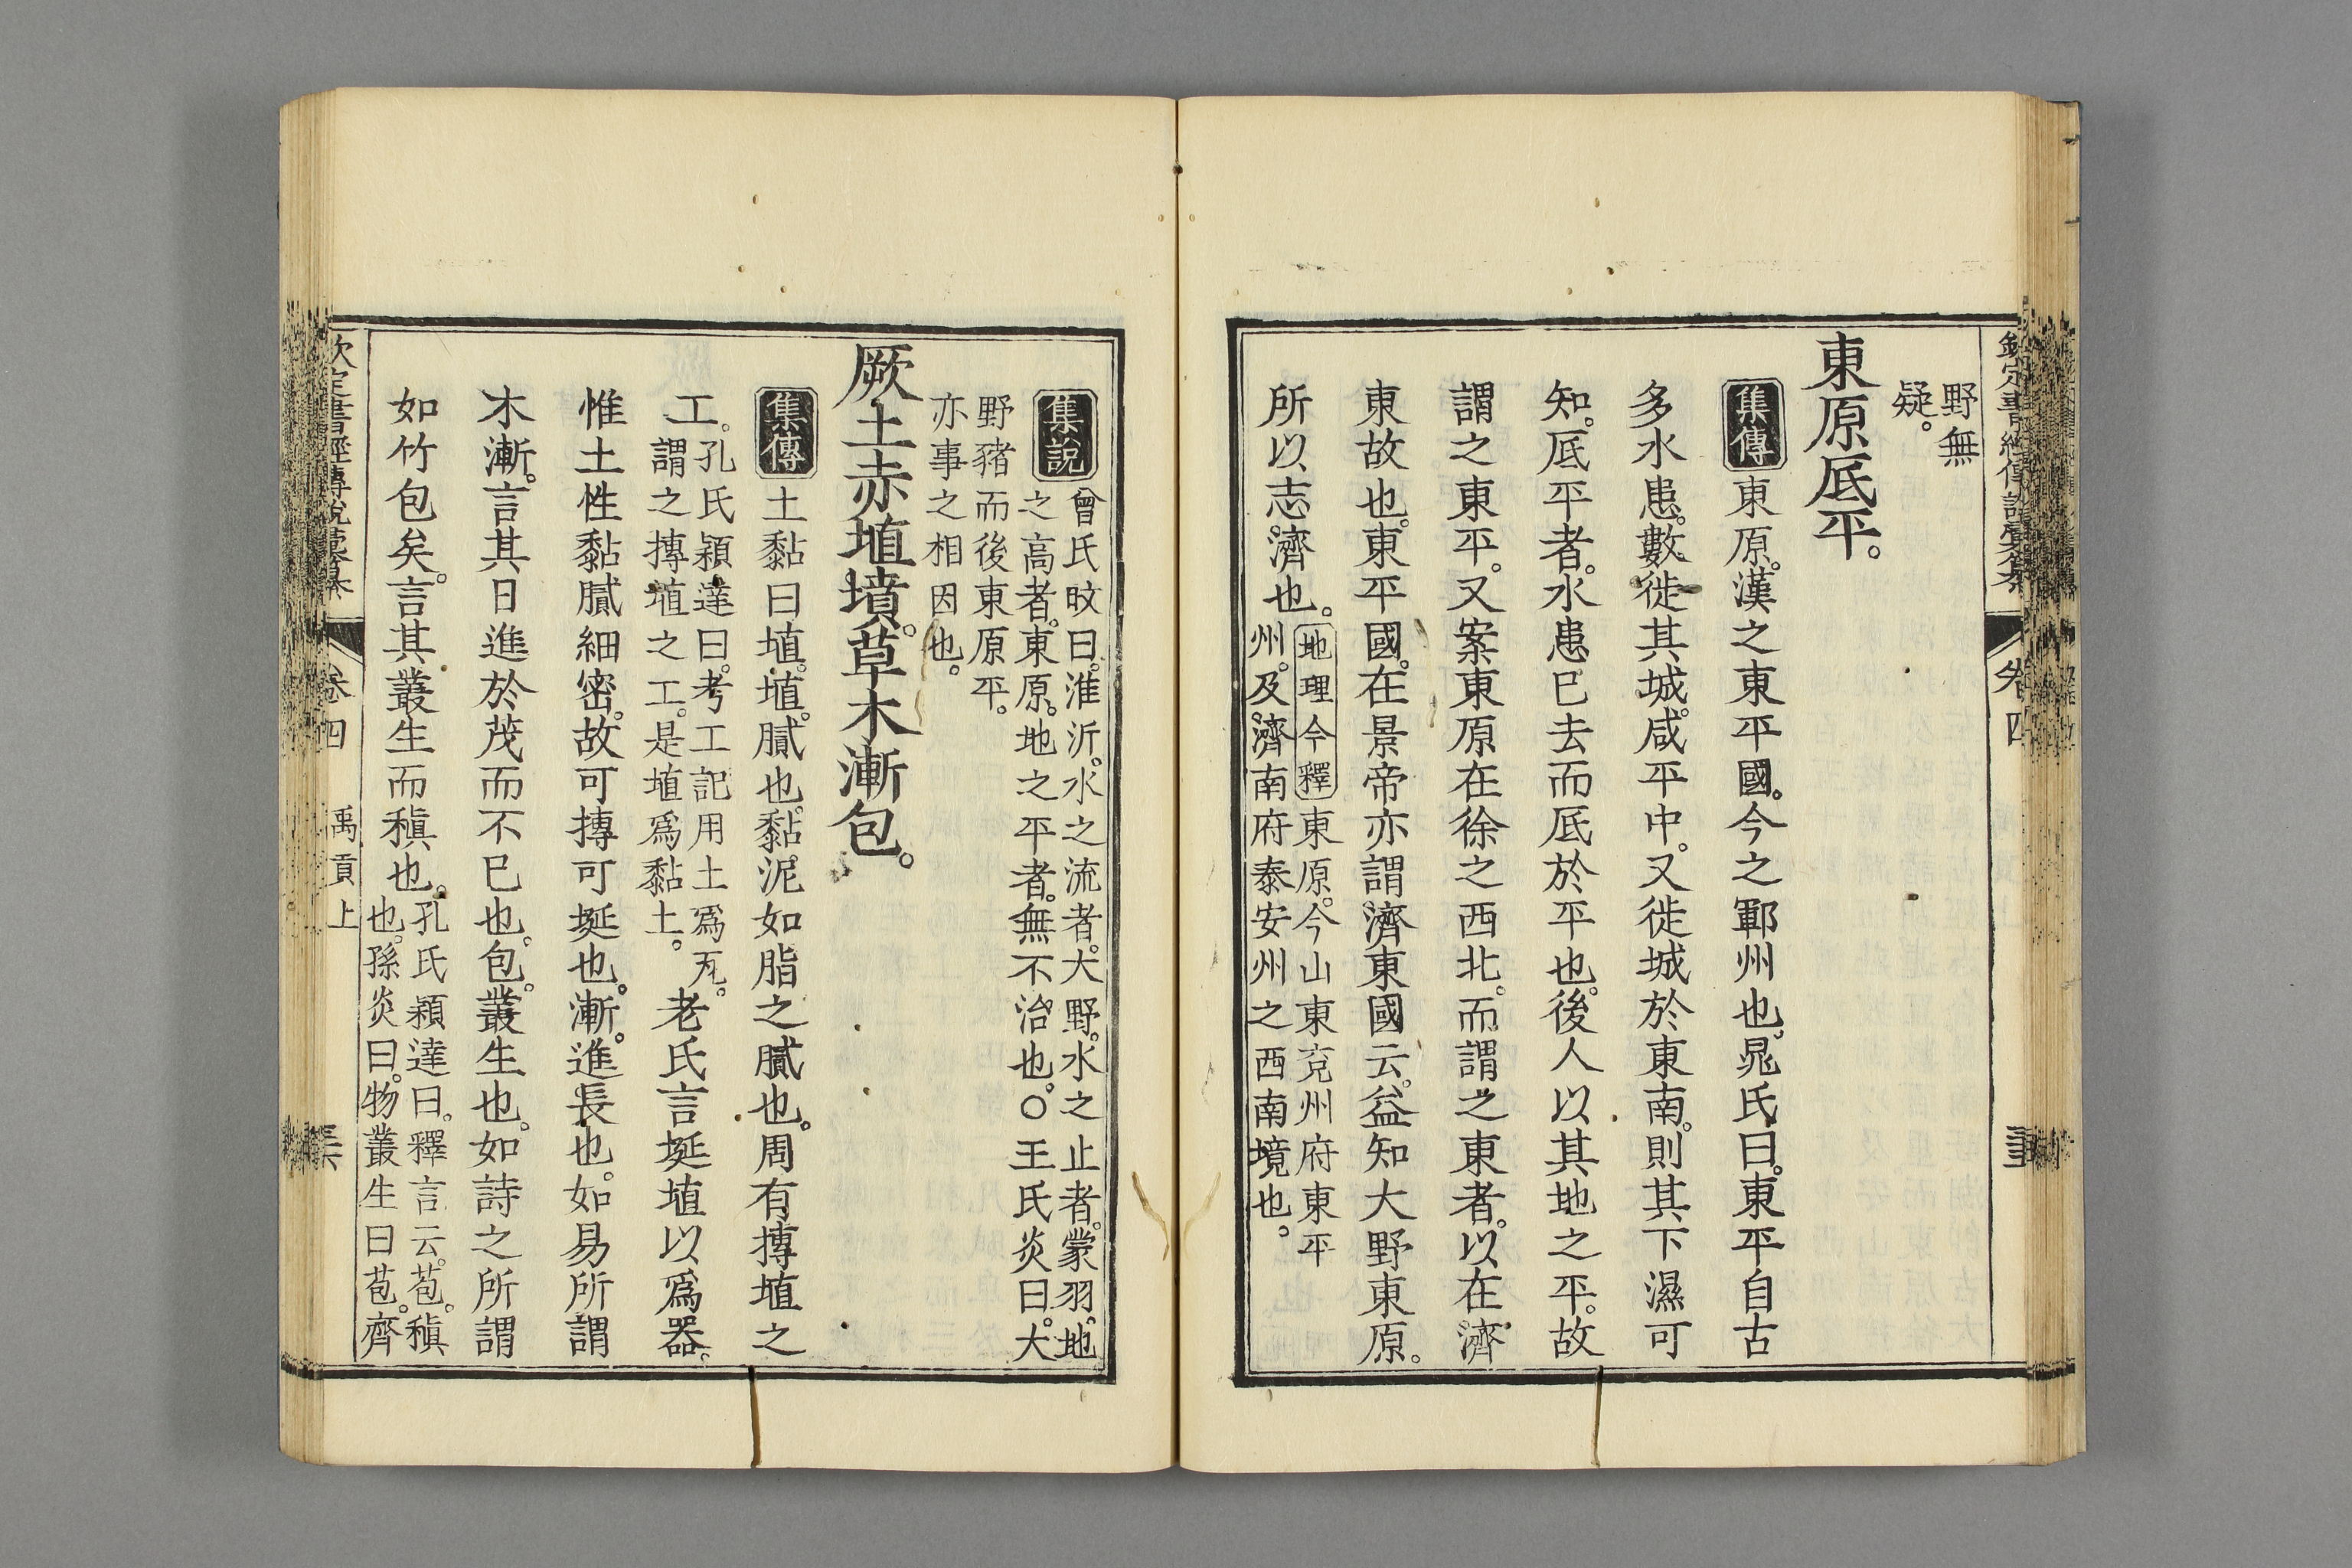 野無
疑。
東原厎平。
集傳 東原。漢之東平國。今之鄆州也。晁氏曰。東平自古
多水患。數徙其城。咸平中。又徙城於東南。則其下濕可
知。厎平者。水患已去而厎於平也。後人以其地之平。故
謂之東平。又案東原在徐之西北。而謂之東者。以在濟
東故也。東平國。在景帝亦謂濟東國云。益知大野東原。
所以志濟也。
地理今釋 東原。今山東兗州府東平
州。及濟南府泰安州之西南境也。
集說
曾氏旼曰。淮沂。水之流者。大野。水之止者。蒙羽。地
之高者。東原。地之平者。無不治也。○王氏炎曰。大
野豬而後東原平。
亦事之相因也。
厥土赤埴墳。草木漸包。
集傳 土黏曰埴。埴。膩也。黏泥如脂之膩也。周有摶埴之
工。
孔氏穎達曰。考工記用土爲瓦。
謂之摶埴之工。是埴爲黏土。
老氏言埏埴以爲器。
惟土性黏膩細密。故可摶可埏也。漸。進長也。如易所謂
木漸。言其日進於茂而不已也。包。叢生也。如詩之所謂
如竹包矣。言其叢生而稹也。
孔氏穎達曰。釋言云。苞。稹
也。孫炎曰。物叢生曰苞。齊
欽定書經傳說彙纂 卷四 禹貢上